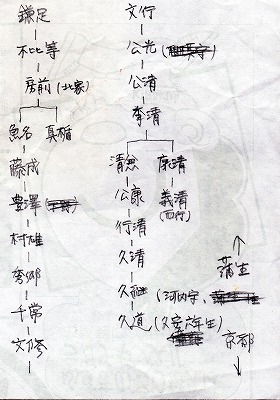 鎌足
不比等
房前(北家)
魚名 真楯
藤成
豊澤
村雄
秀郷
千常
文脩
文行
公光
公清
季清
康清
公康
義清
(西行)
行清
久清
(河内守、
久道(久安六年生)
蒲生
京都